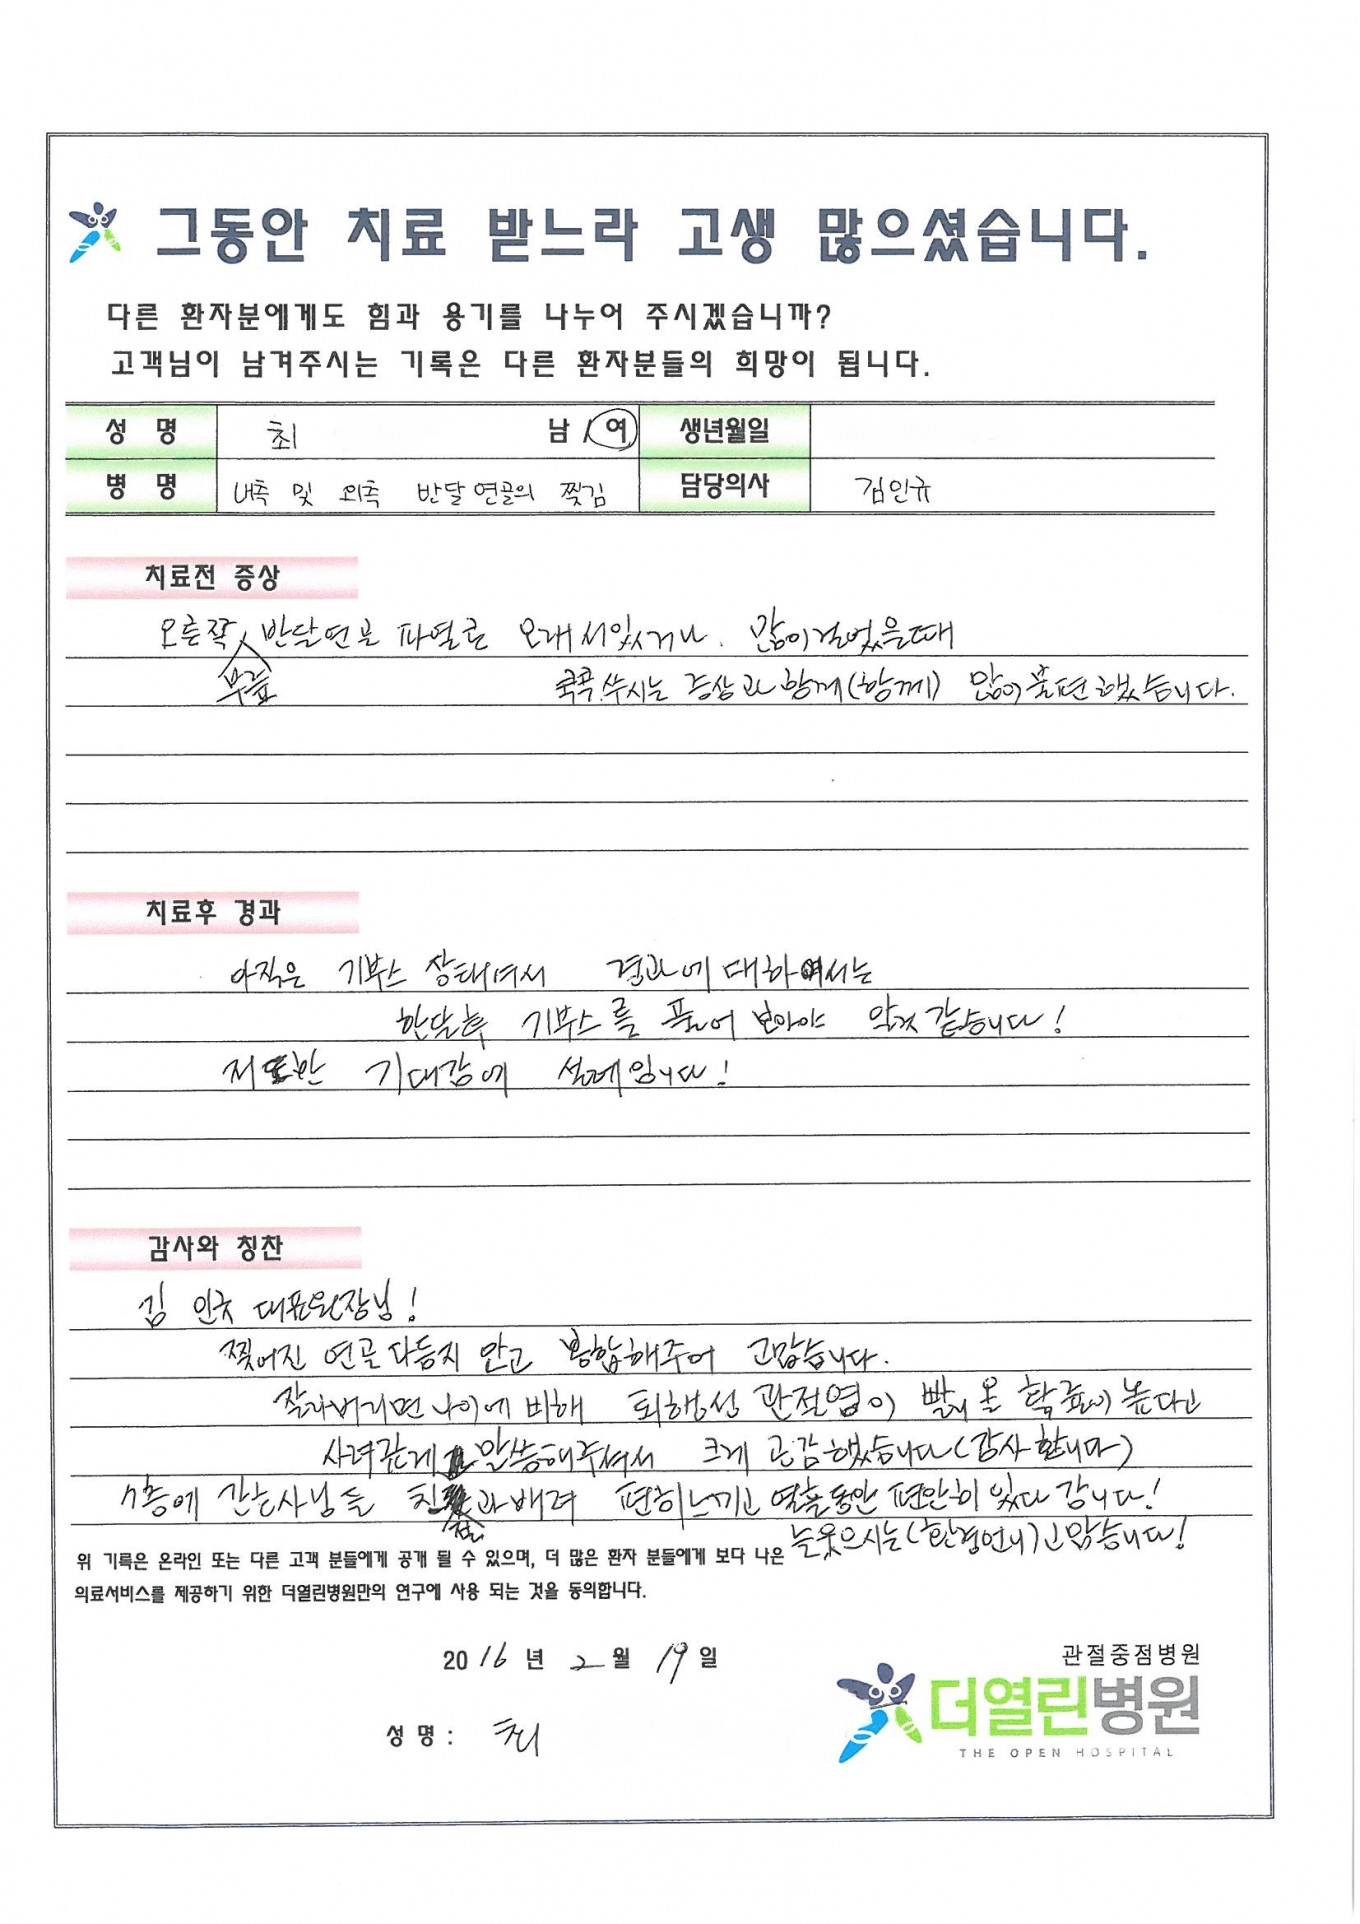 그동안 치료 받느라 고생 많으셨습니다.
다른 환자분에게도 힘과 용기를 나누어 주시겠습니까?
고객님이 남겨주시는 기록은 다른 환자분들의 희망이 됩니다.
성 명 최 남 / 여 생년월일
병 명 내측 및 외측 반달연골의 찢김 담당의사 김인규
치료전 증상
오른쪽 반달연골 파열로 오래 서있거나. 많이걸었을때
무릎 콕콕.쑤시는 증상과 함께(함께) 많이불편했습니다.
치료후 경과
아직은 기부스 상태여서 결과에 대하여서는
한달후 기부스를 풀어 보아야 알것 같습니다!
저 또한 기대감에 설레임니다!
감사와 칭찬
김 인규 대표원장님!
찢어진 연골 다듬지 안고 봉합해주어 고맙습니다.
잘라버리면 나이에 비해 퇴행성 관절염이 빨리 올 확률이 높다고
사려깊게 말씀해주셔서 크게 공감했습니다(감사합니다)
7층에 간호사님들 친절과 배려 편히느끼고 열흘동안 편안히 있다 갑니다!
늘웃으시는(환경언니)고맙습니다!
위 기록은 온라인 또는 다른 고객 분들에게 공개 될 수 있으며, 더 많은 환자 분들에게 보다 나은
의료서비스를 제공하기 위한 더열린병원만의 연구에 사용 되는 것을 동의합니다.
2016 년 2 월 19 일
성 명 : 최
관절중점병원
더열린병원
THE OPEN HOSPITAL